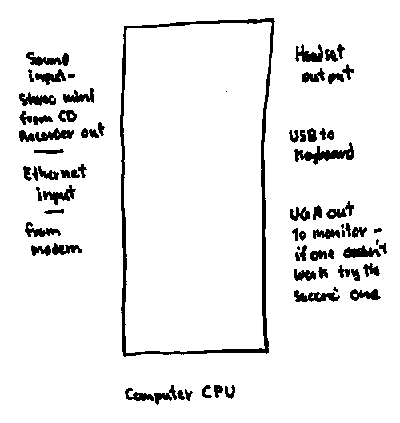 Sound
input-
Stereo mini
from CD
Recorder out
Ethernet
input
from
modem
Headset
output
USB to
Keyboard
VGA out
to monitor -
if one doesn't
work try the
second one
Computer CPU